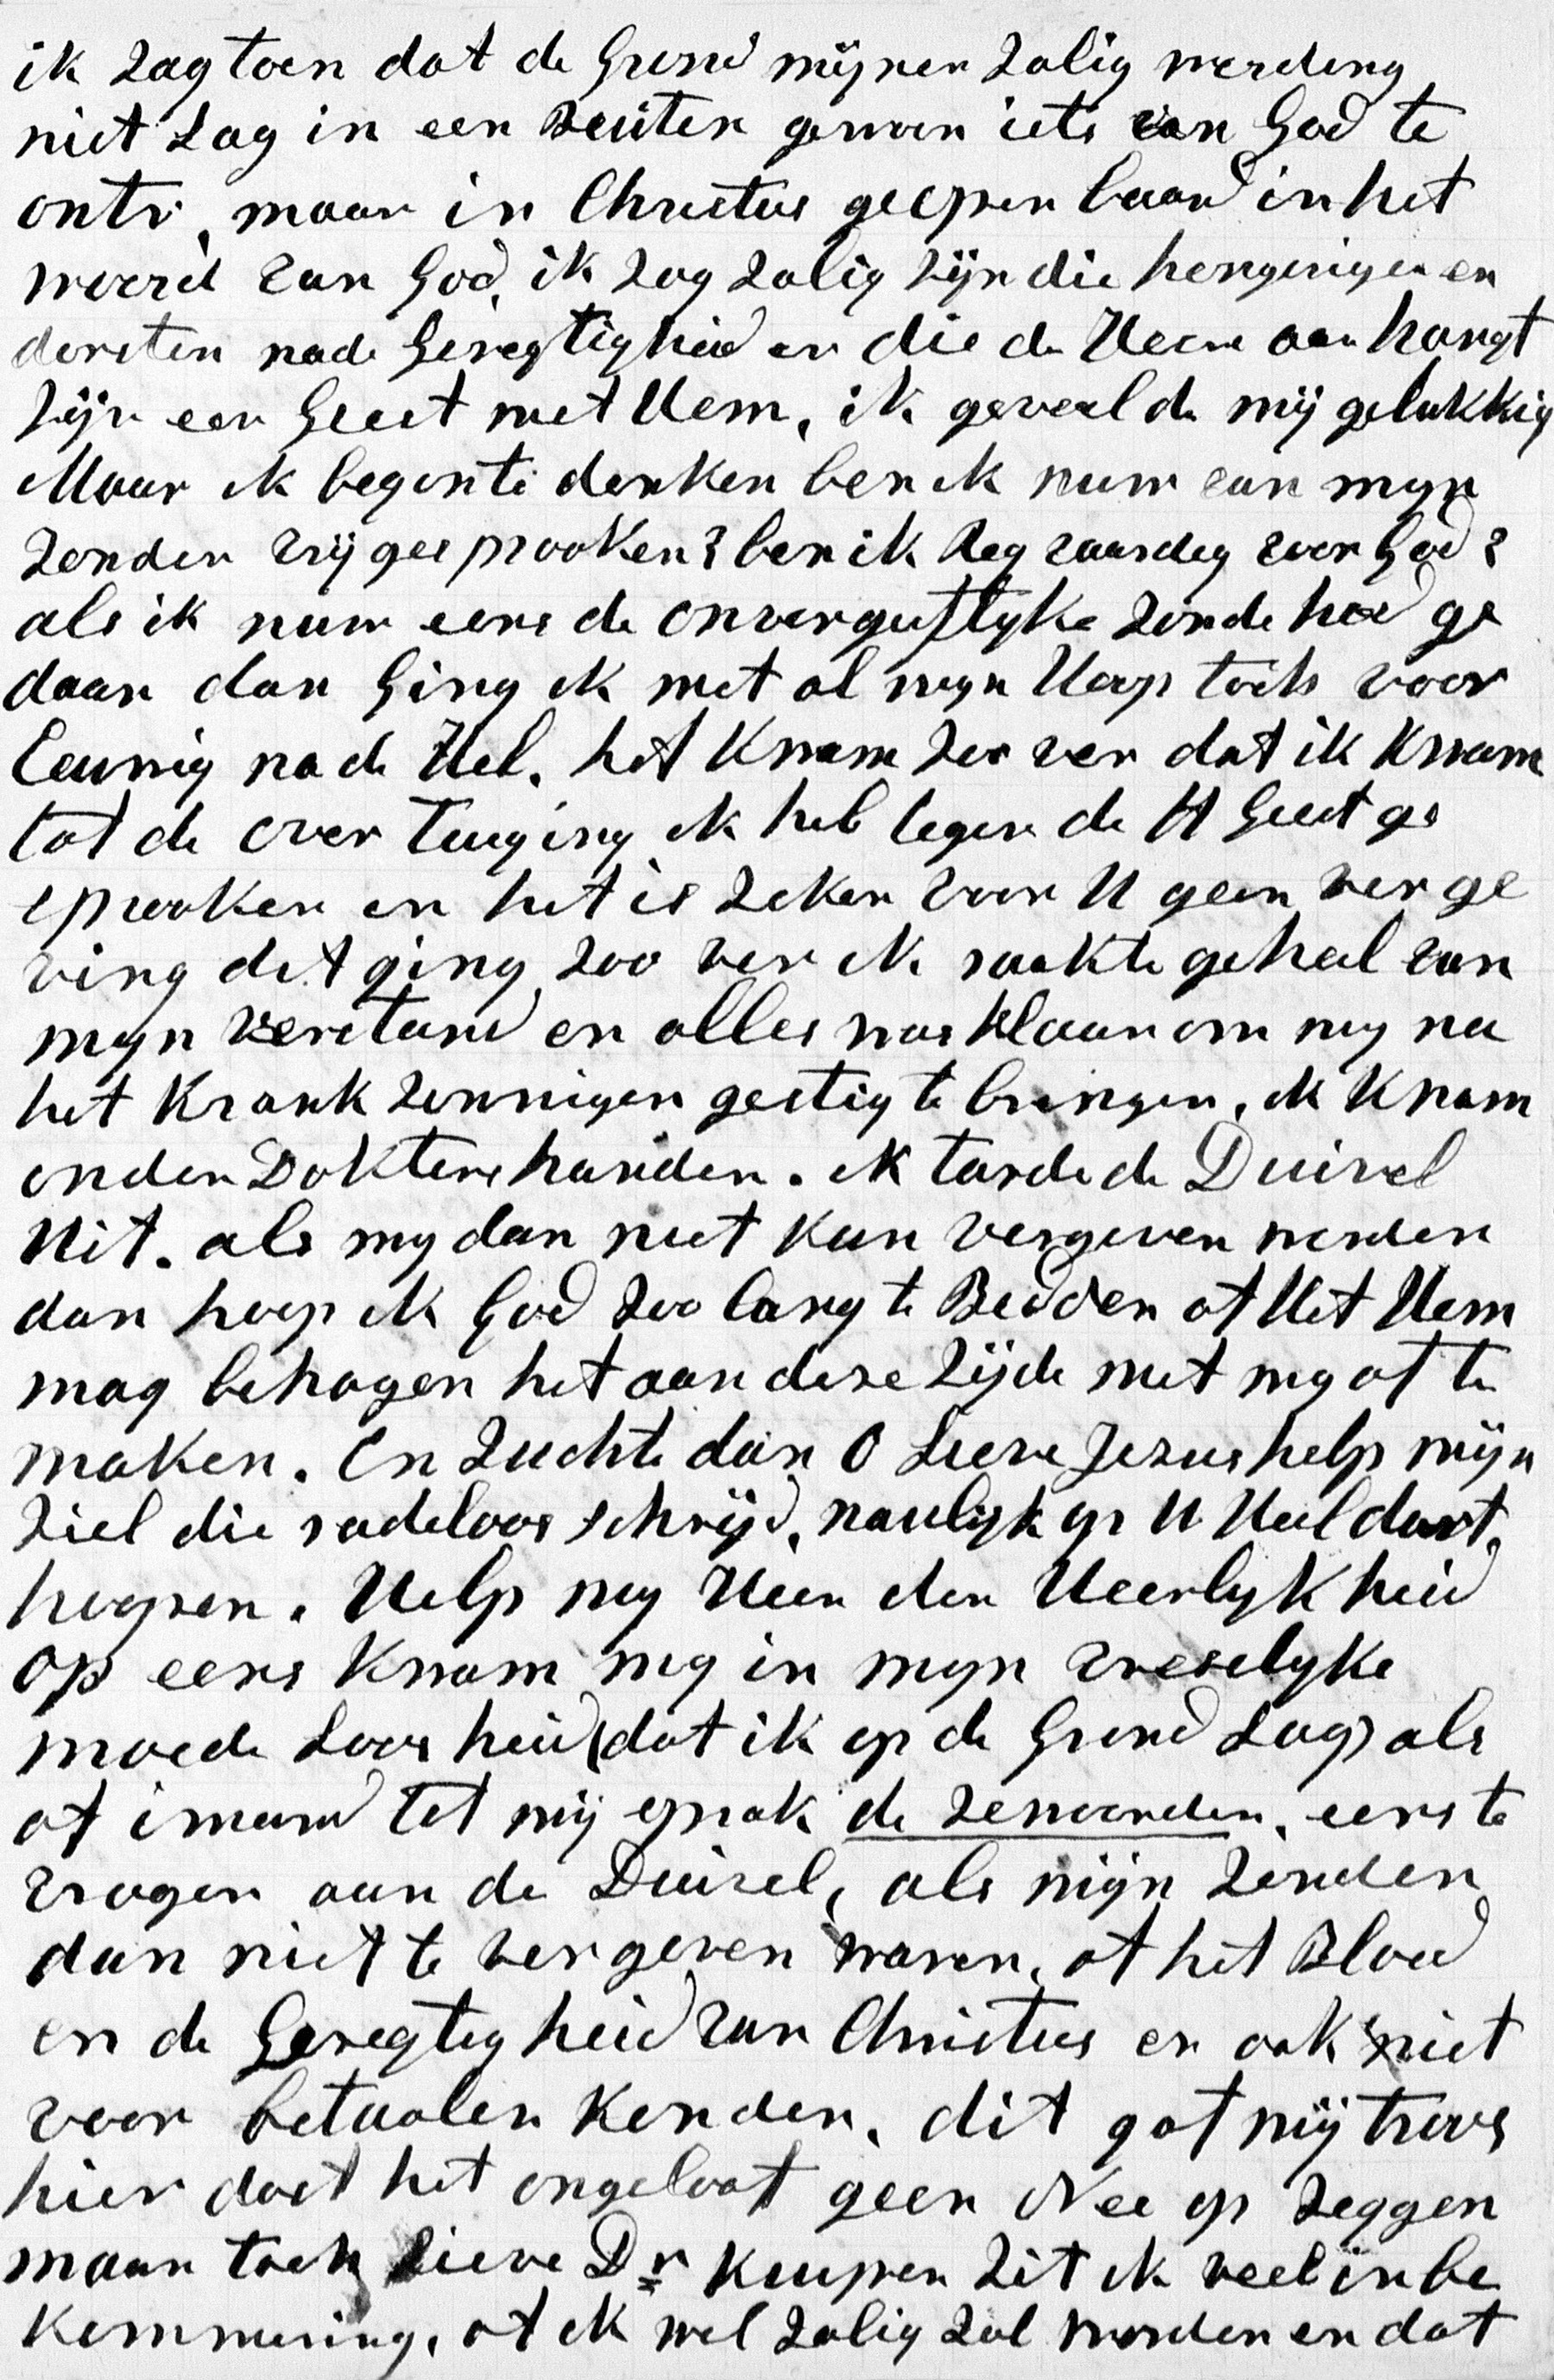 ik zag toen dat de Grond mijner Zalig werding
niet Lag in een Buiten gewoon iets van God te
ontv. maar in Christus geopen baard in het
woord van God, ik zag zalig zijn die hongerigen en
dorsten na de Geregtigheid en die de Heere aan hangt
zijn een Geest met Hem, ik gevoel de mij gelukkig
Maar ik begon te denken ben ik nuw van myn
Zonden vrij gesprooken? ben ik Reg vaardig voor God?
als ik nuw eens de onvergeeflyke zonde had ge
daan dan Ging ik met al myn Hoop toch voor
Eeuwig na de Hel. het Kwam zoo ver dat ik Kwam
tot de over tuiging ik heb tegen de H Geest ge
sprooken en het is zeker voor U geen ver ge
ving dit ging zoo ver ik raakte geheel van
myn verstand en alles was klaar om my na
het Krank zinnigen gestigt te bringen. ik Kwam
onder Dokters handen. ik tarde de Duivel
Uit. als my dan niet kan vergeven worden
dan hoop ik God zoo lang te Bidden of Het Hem
mag behagen het aan deze zijde met my af te
maken. En Zuchte dan O Lieve Jezus help mijn
ziel die radeloos schrijd, naulijk op U Heil durft
hoopen. Help my Heer der Heerlyk heid
op eens Kwam my in myn vreselyke
moede Loos heid (dat ik op de Grond Lag) als
of imand tot mij sprak de ze woorden. eens te
vragen aan de Duivel, als mijn Zonden
dan niet te vergeven waren, of het Bloed
en de Geregtig heid van Christus er ook niet
voor betaalen konden. dit gaf mij troos
hier doet het ongeloof geen Nee op zeggen
maar toch Lieve Dr Kuyper zit ik veel in be
kommering, of ik wel zalig zal worden en dat